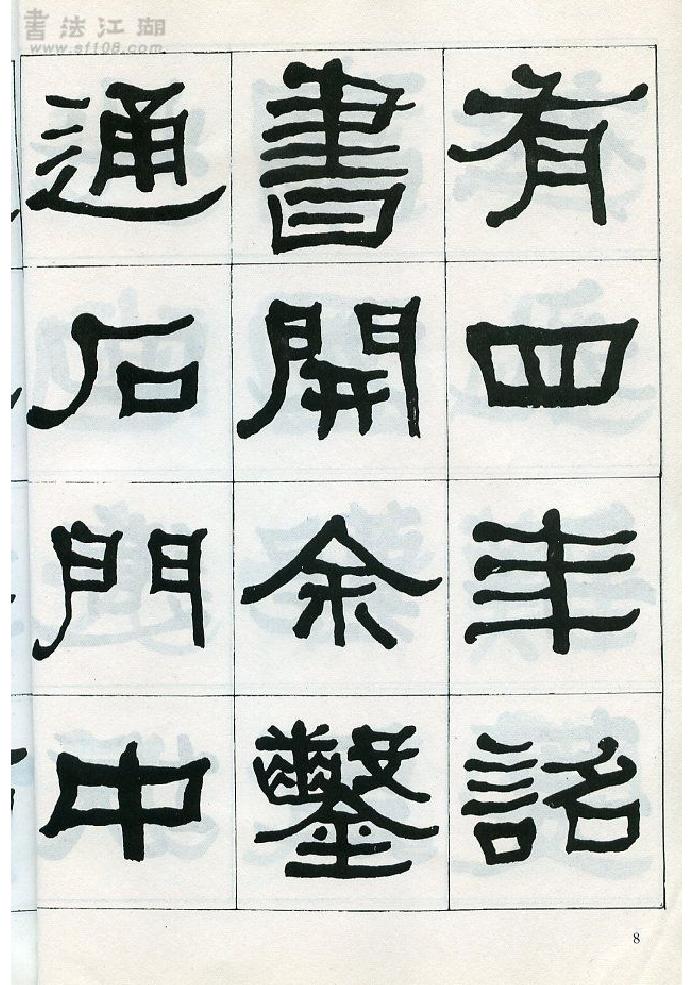 書法江湖
www.sf108.com
有四年詔
書開余鑿
通石門中
8